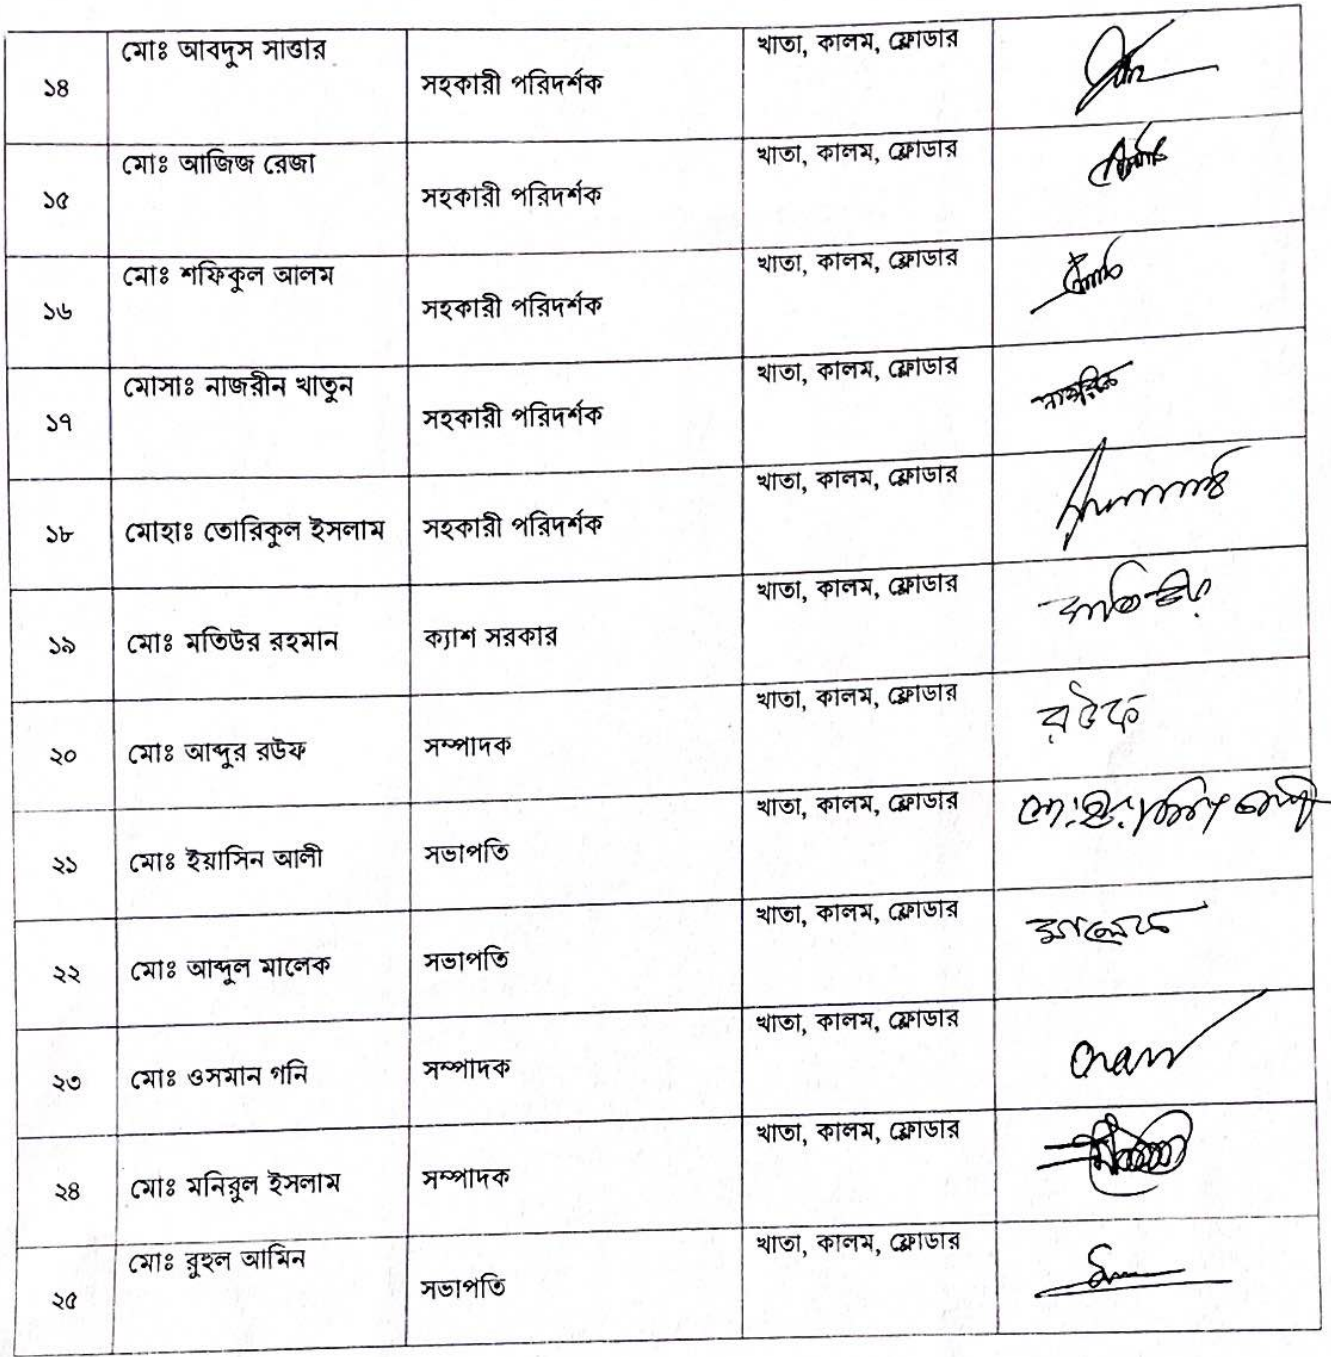 ১৪ মোঃ আবদুস সাত্তার সহকারী পরিদর্শক খাতা, কালম, ফ্লোডার
১৫ মোঃ আজিজ রেজা সহকারী পরিদর্শক খাতা, কালম, ফ্লোডার
১৬ মোঃ শফিকুল আলম সহকারী পরিদর্শক খাতা, কালম, ফ্লোডার
১৭ মোসাঃ নাজরীন খাতুন সহকারী পরিদর্শক খাতা, কালম, ফ্লোডার
১৮ মোহাঃ তোরিকুল ইসলাম সহকারী পরিদর্শক খাতা, কালম, ফ্লোডার
১৯ মোঃ মতিউর রহমান ক্যাশ সরকার খাতা, কালম, ফ্লোডার
২০ মোঃ আব্দুর রউফ সম্পাদক খাতা, কালম, ফ্লোডার রউফ
২১ মোঃ ইয়াসিন আলী সভাপতি খাতা, কালম, ফ্লোডার
২২ মোঃ আব্দুল মালেক সভাপতি খাতা, কালম, ফ্লোডার মালেক
২৩ মোঃ ওসমান গনি সম্পাদক খাতা, কালম, ফ্লোডার
২৪ মোঃ মনিরুল ইসলাম সম্পাদক খাতা, কালম, ফ্লোডার
২৫ মোঃ রুহুল আমিন সভাপতি খাতা, কালম, ফ্লোডার